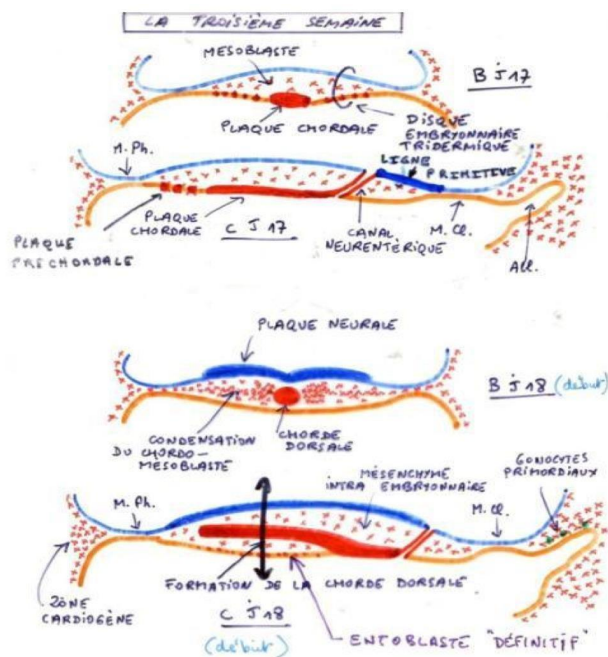 LA TROISIÈME SEMAINE
MESOBLASTE
B J 17
PLAQUE CHORDALE
DISQUE
EMBRYONNAIRE
TRIDERMIQUE
M. Ph.
LIGNE
PRIMITIVE
PLAQUE
CHORDALE
C J 17
CANAL
NEURENTÉRIQUE
M. Cl.
All.
PLAQUE
PRECHORDALE
PLAQUE NEURALE
B J 18 (début)
CONDENSATION
DU CHORDO-
MESOBLASTE
CHORDE
DORSALE
GONOCYTES
PRIMORDIAUX
M. Ph.
MÉSENCHYME
INTRA EMBRYONNAIRE
M. Cl.
FORMATION DE LA CHORDE DORSALE
ZÔNE
CARDIOGÈNE
C J 18
(début)
ENTOBLASTE "DÉFINITIF"